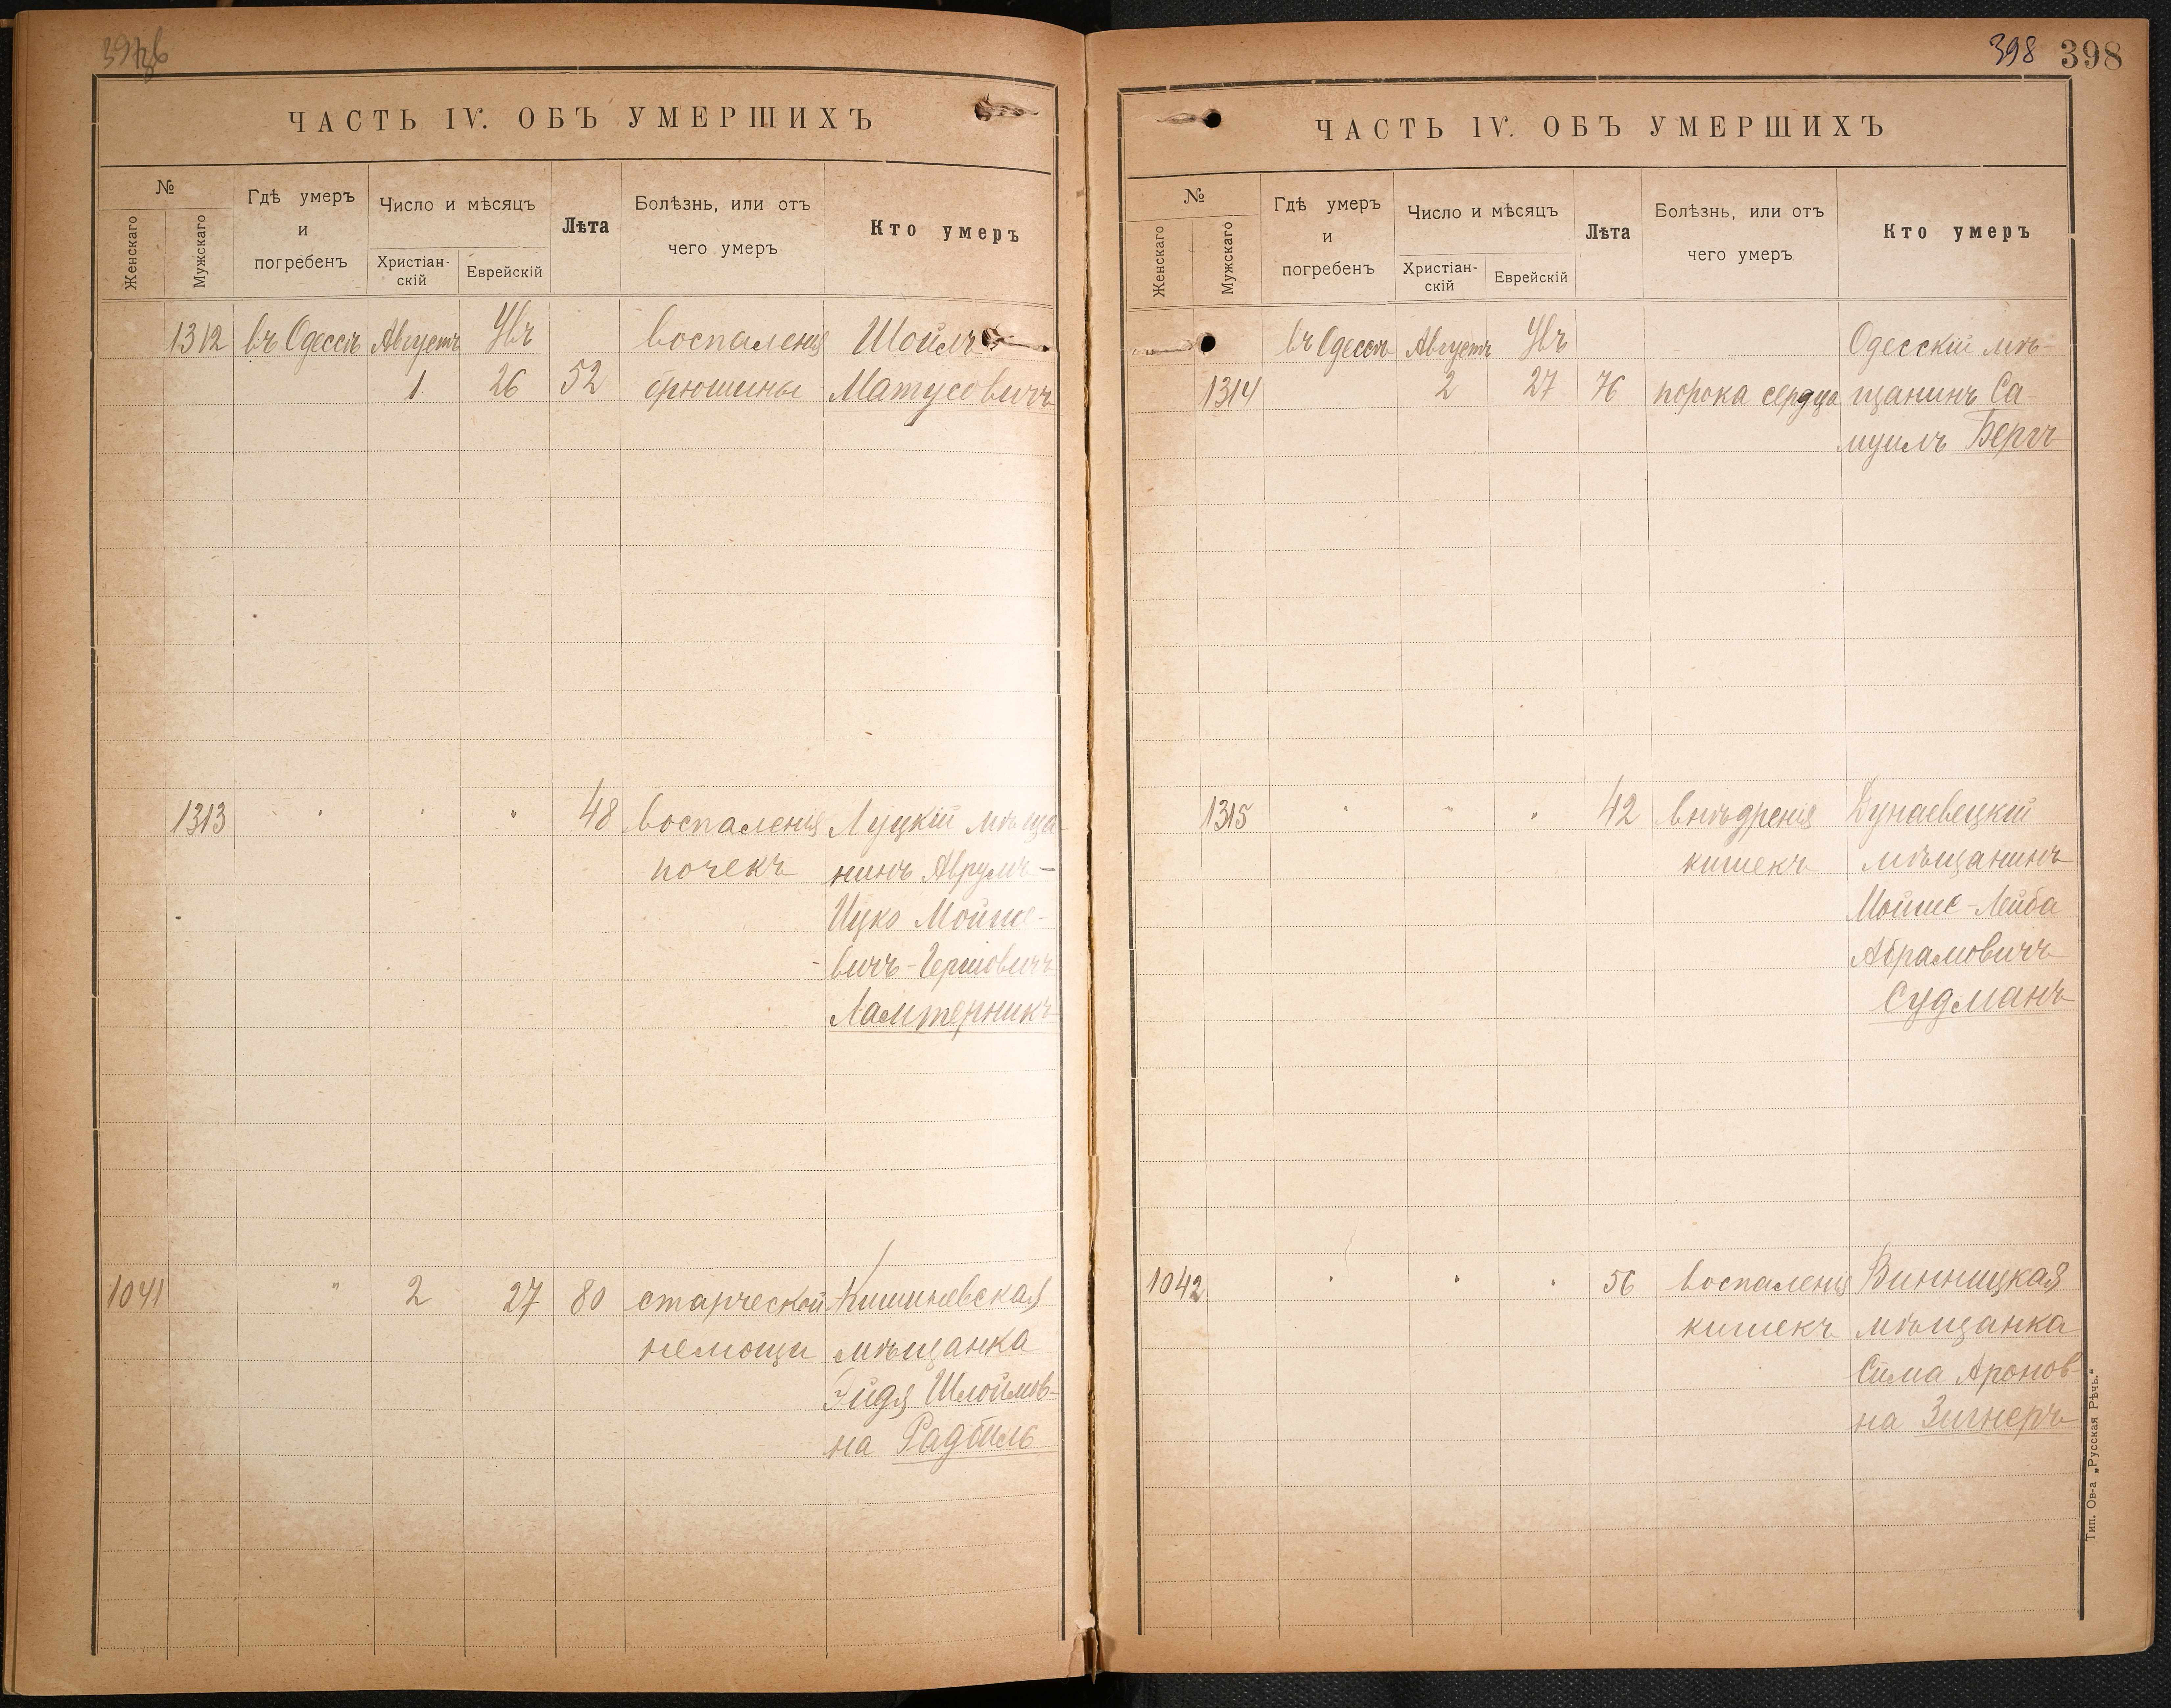 ЧАСТЬ IV. ОБЪ УМЕРШИХЪ
№
Женскаго
Мужскаго
Гдѣ умеръ
и
погребенъ
Число и мѣсяцъ
Христіан-
скій
Еврейскій
Лѣта
Болѣзнь, или отъ
чего умеръ
Кто умеръ
1312 въ Одессѣ Августъ Увъ воспаленія Шойлъ
1 26 52 брюшины Матусовичъ
1313 " " " 48 воспаленія Луцкій мѣща-
почекъ нинъ Аврумъ-
Ицко Мойше-
вичъ-Гершовичъ
Ламтерникъ
1041 " 2 27 80 старческой Кишиневская
немощи мѣщанка
Эйдя Шлоймов-
на Радбиль
398 398
ЧАСТЬ IV. ОБЪ УМЕРШИХЪ
№
Женскаго
Мужскаго
Гдѣ умеръ
и
погребенъ
Число и мѣсяцъ
Христіан-
скій
Еврейскій
Лѣта
Болѣзнь, или отъ
чего умеръ
Кто умеръ
въ Одессѣ Августъ Увъ Одесскій мѣ-
1314 2 27 76 порока сердца щанинъ Са-
муилъ Бергъ
1315 " " " 42 внѣдренія Дунаевецкій
кишекъ мѣщанинъ
Мойше-Лейба
Абрамовичъ
Судманъ
1042 " " " 56 воспаленія Винницкая
кишекъ мѣщанка
Сима Аронов-
на Зигнеръ
Тип. Ов-а „Русская Рѣчь."